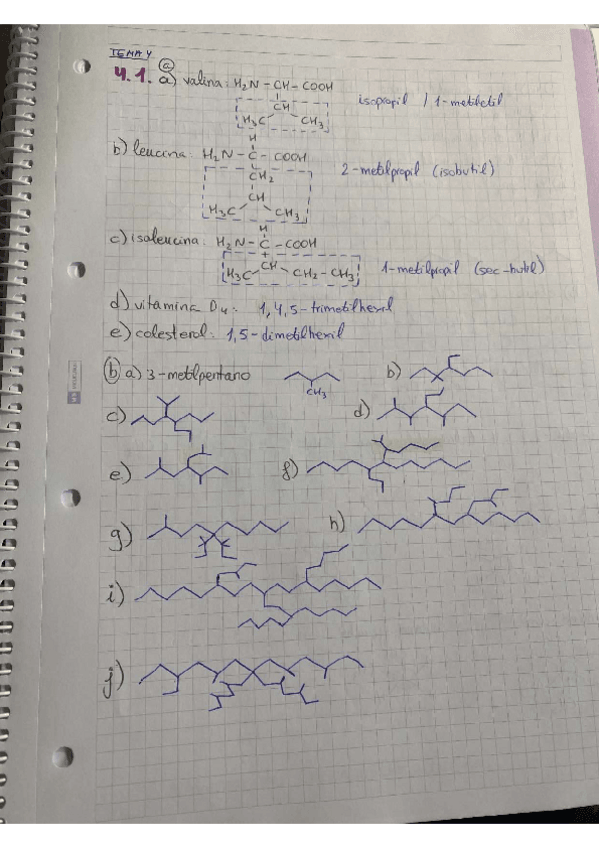 TEMA 4
a
4.1. a) valina: H2N - CH - COOH
CH
H3C CH3
isopropil / 1-metiletil
H
b) leucina: H2N - C - COOH
CH2
CH
H3C CH3
2-metilpropil (isobutil)
H
c) isoleucina: H2N - C - COOH
H3C CH CH2 - CH3
1-metilpropil (sec-butil)
d) vitamina D4: 1,4,5-trimetilhexil
e) colesterol: 1,5-dimetilhexil
b a) 3-metilpentano
CH3
b)
c)
d)
e)
f)
g)
h)
i)
j)